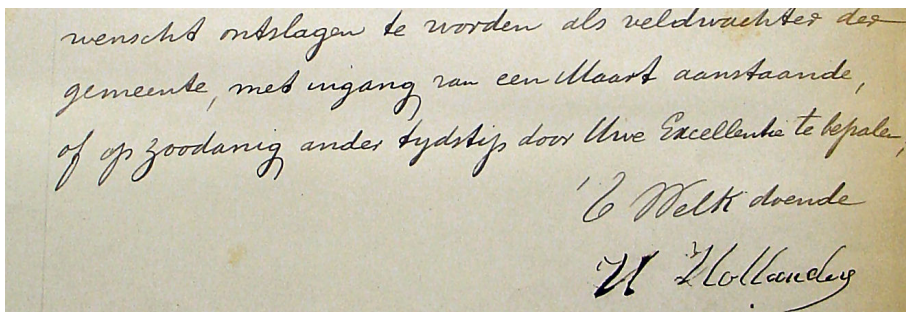 wenscht ontslagen te worden als veldwachter der
gemeente, met ingang van een Maart aanstaande,
of op zoodanig ander tydstip door Uwe Excellentie te bepalen,
't Welk doende
H Hollanders